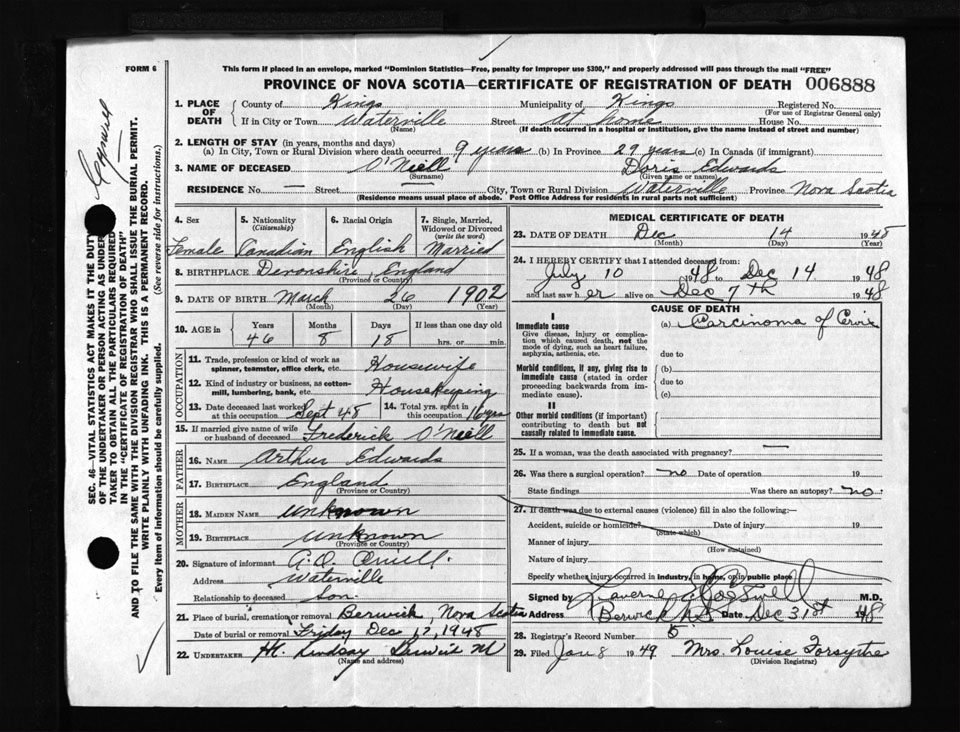 FORM 6
This form if placed in an envelope, marked "Dominion Statistics—Free, penalty for improper use $300," and properly addressed will pass through the mail "FREE"
PROVINCE OF NOVA SCOTIA—CERTIFICATE OF REGISTRATION OF DEATH 006888
1. PLACE OF DEATH
County of Kings Municipality of Kings Registered No.
(For use of Registrar General only)
If in City or Town Waterville Street At home House No.
(Name) (If death occurred in a hospital or institution, give the name instead of street and number)
2. LENGTH OF STAY (in years, months and days)
(a) In City, Town or Rural Division where death occurred 9 years (b) In Province 29 years (c) In Canada (if immigrant)
3. NAME OF DECEASED O'Neill Doris Edwards
(Surname) (Given name or names)
RESIDENCE No. — Street City, Town or Rural Division Waterville Province Nova Scotia
(Residence means usual place of abode. Post Office Address for residents in rural parts not sufficient)
4. Sex Female
5. Nationality (Citizenship) Canadian
6. Racial Origin English
7. Single, Married, Widowed or Divorced (write the word) Married
8. BIRTHPLACE Devonshire, England
(Province or Country)
9. DATE OF BIRTH March 26 1902
(Month) (Day) (Year)
10. AGE in Years Months Days If less than one day old
46 8 18 hrs. or min.
OCCUPATION
11. Trade, profession or kind of work as spinner, teamster, office clerk, etc. Housewife
12. Kind of industry or business, as cotton-mill, lumbering, bank, etc. Housekeeping
13. Date deceased last worked at this occupation Sept 48
14. Total yrs. spent in this occupation
15. If married give name of wife or husband of deceased Frederick O'Neill
FATHER
16. NAME Arthur Edwards
17. BIRTHPLACE England
(Province or Country)
MOTHER
18. MAIDEN NAME unknown
19. BIRTHPLACE unknown
(Province or Country)
20. Signature of informant
Address Waterville
Relationship to deceased Son.
21. Place of burial, cremation or removal Berwick, Nova Scotia
Date of burial or removal Friday Dec 17, 1948
22. UNDERTAKER Lindsay
(Name and address)
MEDICAL CERTIFICATE OF DEATH
23. DATE OF DEATH Dec 14 1948
(Month) (Day) (Year)
24. I HEREBY CERTIFY that I attended deceased from:
July 10 1948 Dec 14 1948
and last saw h er alive on Dec 7th 1948
CAUSE OF DEATH
I
Immediate cause
Give disease, injury or complication which caused death, not the mode of dying, such as heart failure, asphyxia, asthenia, etc.
(a) Carcinoma of
due to
Morbid conditions, if any, giving rise to immediate cause (stated in order proceeding backwards from immediate cause).
(b)
due to
(c)
II
Other morbid conditions (if important) contributing to death but not causally related to immediate cause.
25. If a woman, was the death associated with pregnancy? —
26. Was there a surgical operation? no Date of operation 19
State findings Was there an autopsy? no.
27. If death was due to external causes (violence) fill in also the following:—
Accident, suicide or homicide? Date of injury 19
(State which)
Manner of injury
(How sustained)
Nature of injury
Specify whether injury occurred in industry, in home, or in public place
Signed by M.D.
Address Berwick N.S Date Dec 31st 1948
28. Registrar's Record Number 5
29. Filed Jan 8 1949 Mrs. Louise Forsythe
(Division Registrar)
SEC. 46—VITAL STATISTICS ACT MAKES IT THE DUTY
OF THE UNDERTAKER OR PERSON ACTING AS UNDERTAKER TO OBTAIN ALL THE PARTICULARS REQUIRED
IN THE "CERTIFICATE OF REGISTRATION OF DEATH"
AND TO FILE THE SAME WITH THE DIVISION REGISTRAR WHO SHALL ISSUE THE BURIAL PERMIT.
WRITE PLAINLY WITH UNFADING INK. THIS IS A PERMANENT RECORD.
Every item of information should be carefully supplied. (See reverse side for instructions.)